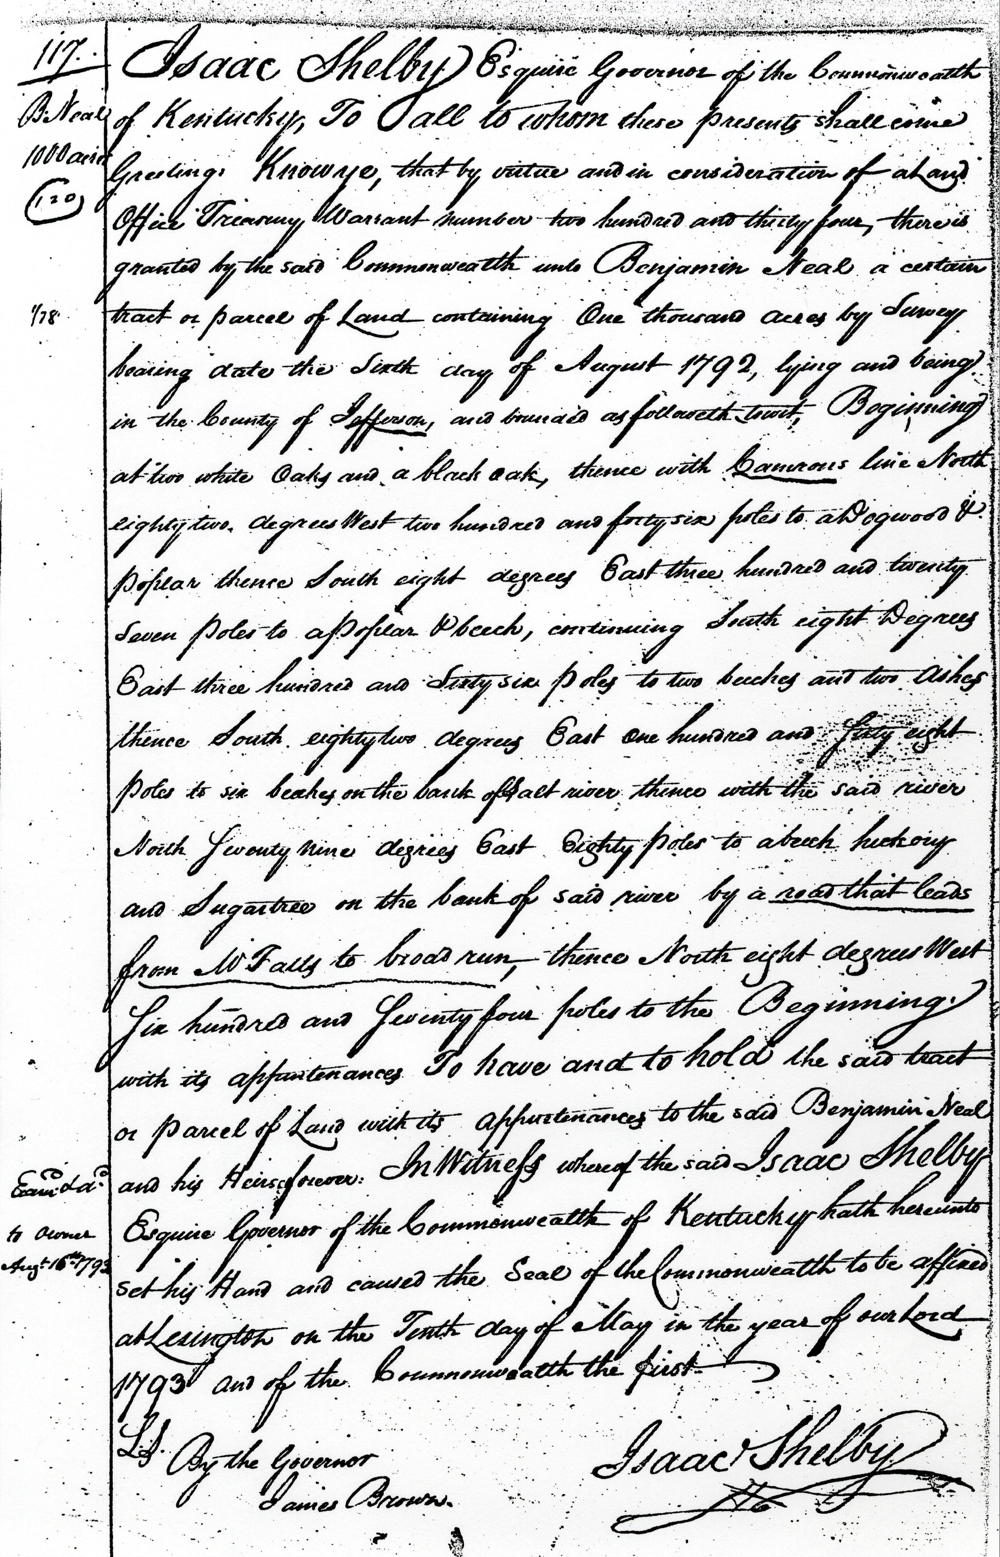 117.
B. Neal
1000 acres
(120)
1/78
Isaac Shelby Esquire Governor of the Commonwealth
of Kentucky, To all to whom these presents shall come
Greeting: Know ye, that by virtue and in consideration of a Land
Office Treasury Warrant number two hundred and thirty four, there is
granted by the said Commonwealth unto Benjamin Neal a certain
tract or parcel of Land containing One thousand acres by Survey
bearing date the Sixth day of August 1792, lying and being
in the County of Jefferson, and bounded as followeth towit, Beginning
at two white Oaks and a black oak, thence with Camrons line North
eighty two degrees West two hundred and forty six poles to a Dogwood &
poplar thence South eight degrees East three hundred and twenty
Seven poles to a Poplar & beech, continuing South eight Degrees
East three hundred and Sixty six poles to two beeches and two Ashes
thence South eighty two degrees East one hundred and Sixty eight
Poles to six beaches on the bank of Salt river thence with the said river
North Seventy nine degrees East Eighty poles to a beech hickory
and Sugartree on the bank of said river by a road that leads
from McFalls to broad run, thence North eight degrees West
Six hundred and Seventy four poles to the Beginning.
with its appurtenances To have and to hold the said tract
or parcel of Land with its appurtenances to the said Benjamin Neal
and his Heirs forever. In Witness whereof the said Isaac Shelby
Esquire Governor of the Commonwealth of Kentucky hath hereunto
set his Hand and caused the Seal of the Commonwealth to be affixed
at Lexington on the Tenth day of May in the year of our Lord
1793 and of the Commonwealth the first
Examd & dd
to owner
Augt 16th 1793
L.S. By the Governor
James Brown.
Isaac Shelby